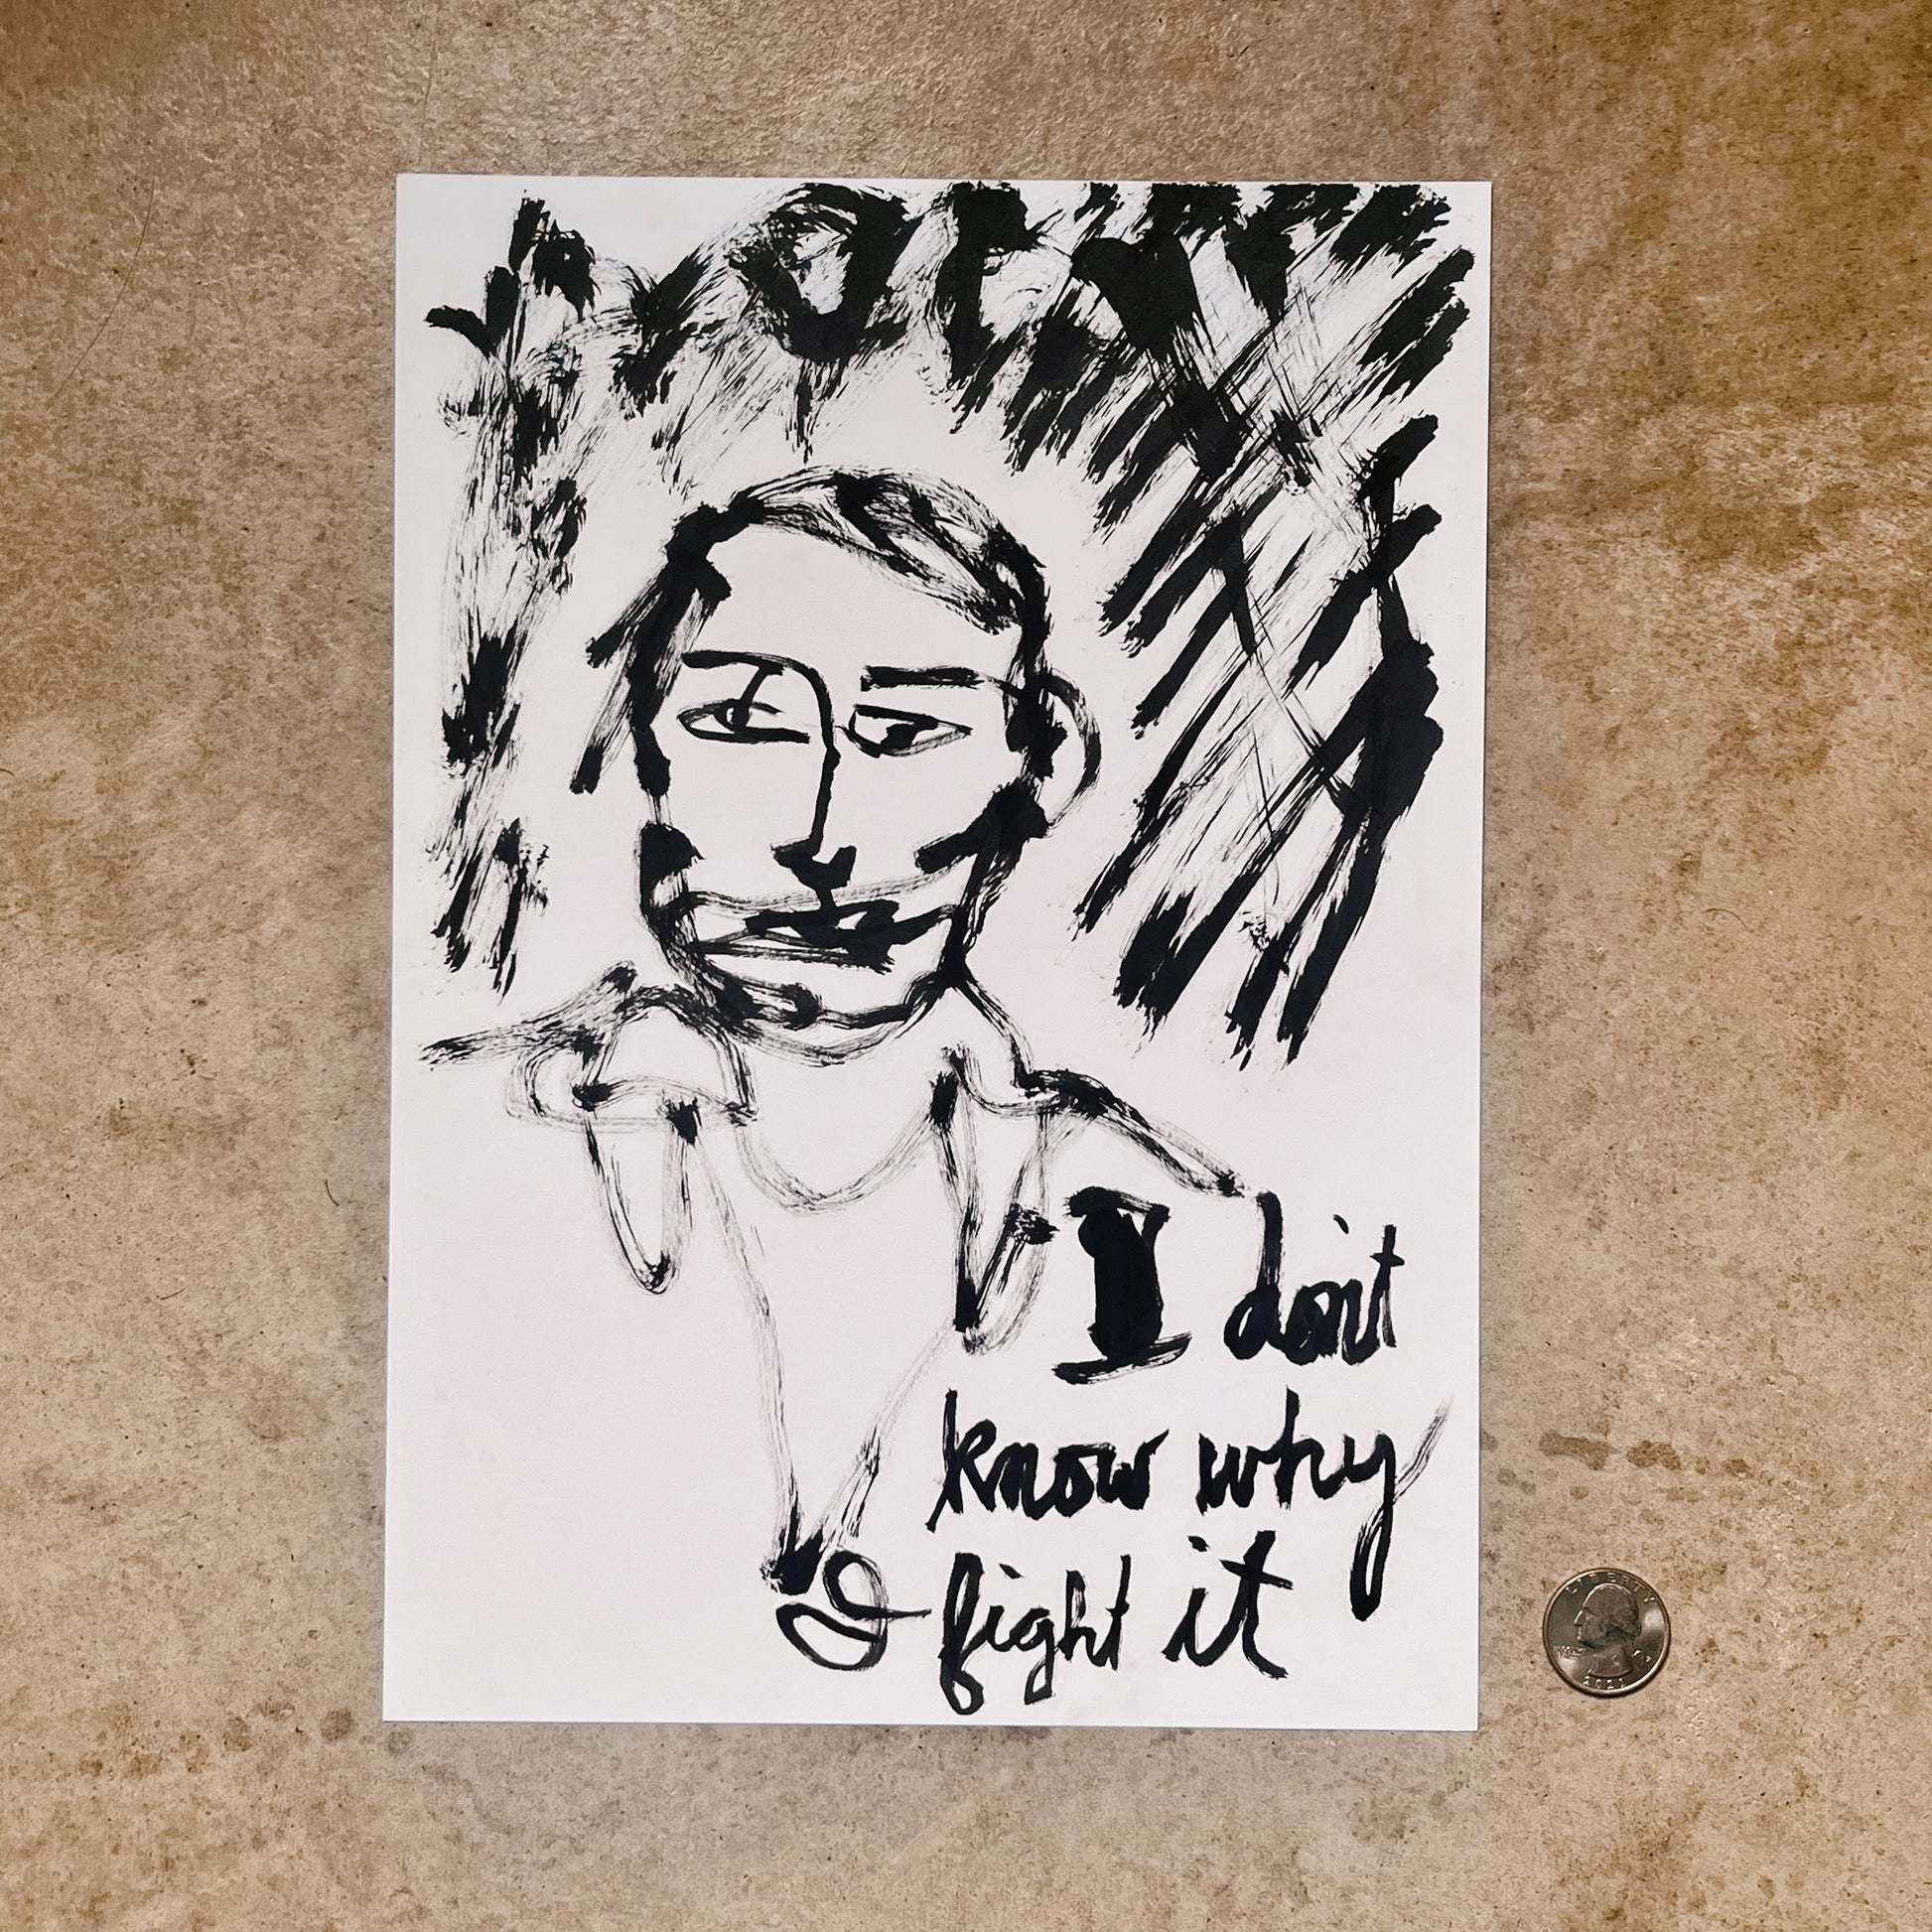 I don't
know why
I fight it
LIBERTY